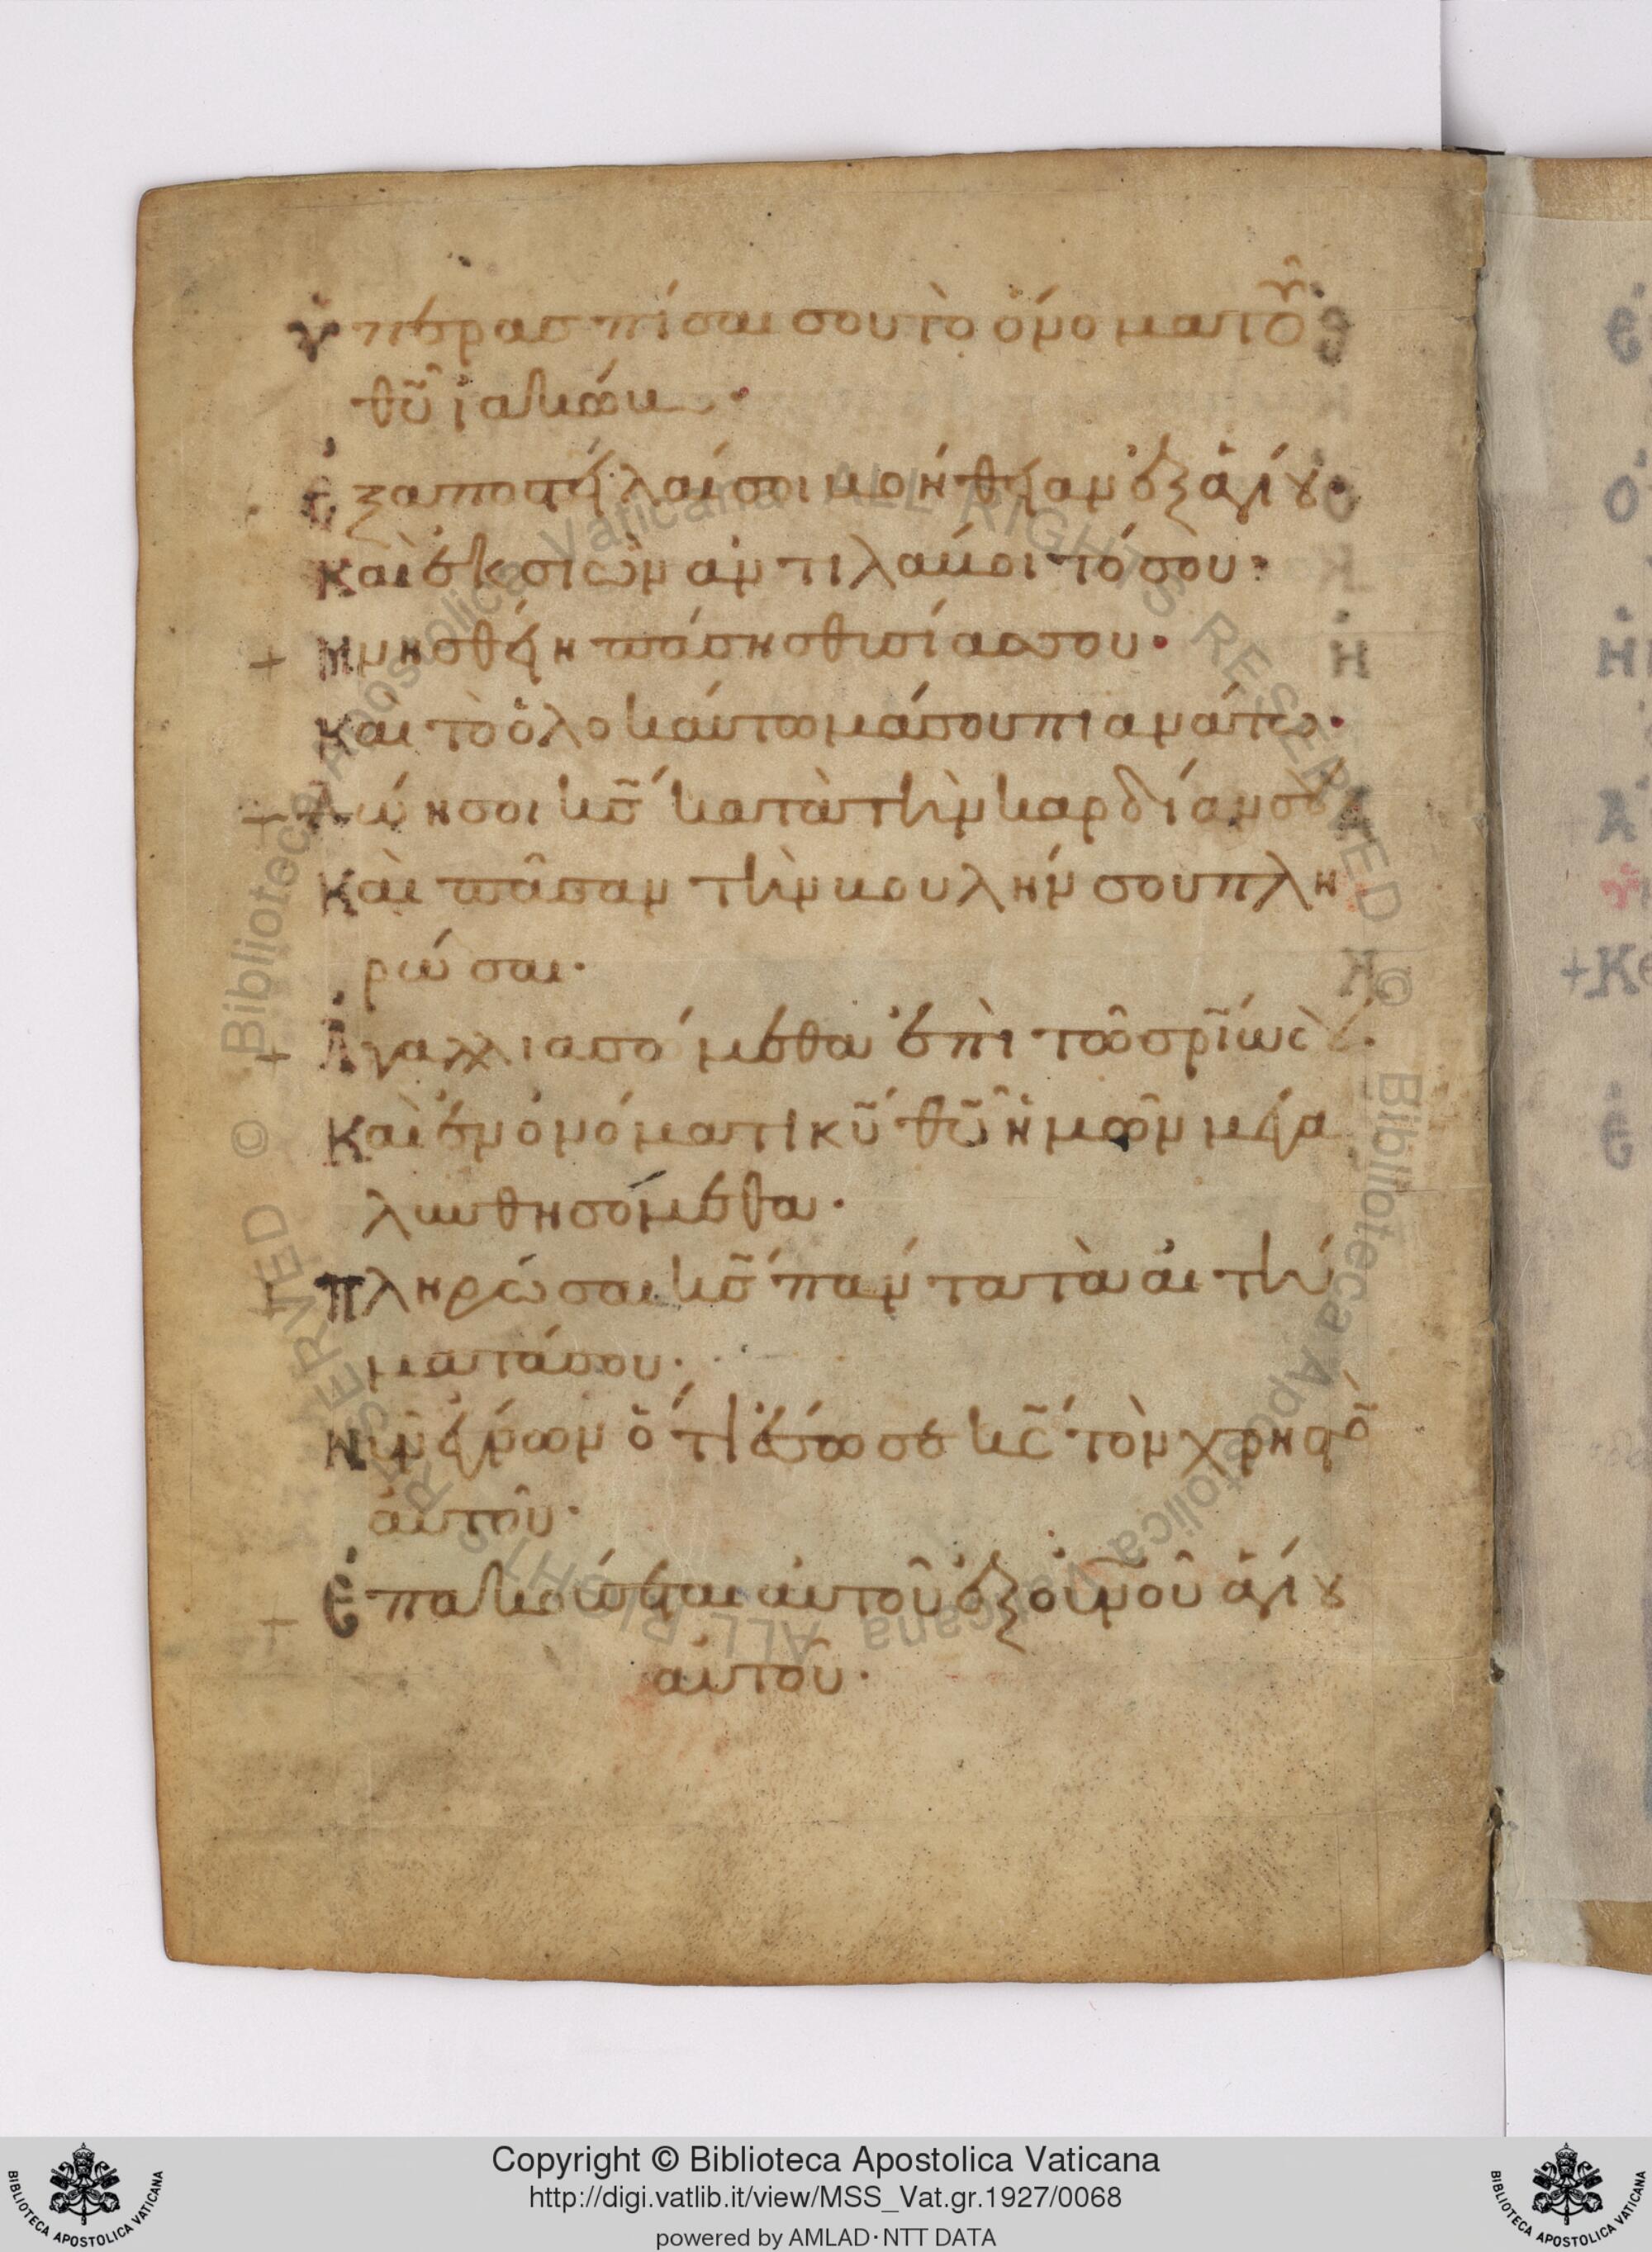 ὑπερασπίσαι σου τὸ ὄνομα τοῦ
θῦ ἰακώβ·
ἐξαποστείλαι σοι βοήθειαν ἐξ ἁγίου·
καὶ ἐκ σιὼν ἀντιλάβοιτό σου:
+ μνησθείη πάσης θυσίας σου·
καὶ τὸ ὁλοκαύτωμά σου πιανάτω·
+ δώη σοι κς κατὰ τὴν καρδίαν σου
καὶ πᾶσαν τὴν βουλήν σου πλη
ρώσαι·
+ ἀγαλλιασόμεθα ἐπὶ τῶ σρίω σου·
καὶ ἐν ὀνόματι κῦ θῦ ἡμῶν μεγα
λυνθησόμεθα·
πληρώσαι κς πάντα τὰ αἰτή
ματά σου·
νῦν ἔγνων ὅτι ἔσωσε κς τὸν χριστὸ
αὐτοῦ·
+ ἐπακούσεται αὐτοῦ ἐξ οὐνοῦ ἁγίου
αὐτοῦ·
Copyright © Biblioteca Apostolica Vaticana
http://digi.vatlib.it/view/MSS_Vat.gr.1927/0068
powered by AMLAD·NTT DATA
BIBLIOTECA APOSTOLICA VATICANA
BIBLIOTECA APOSTOLICA VATICANA